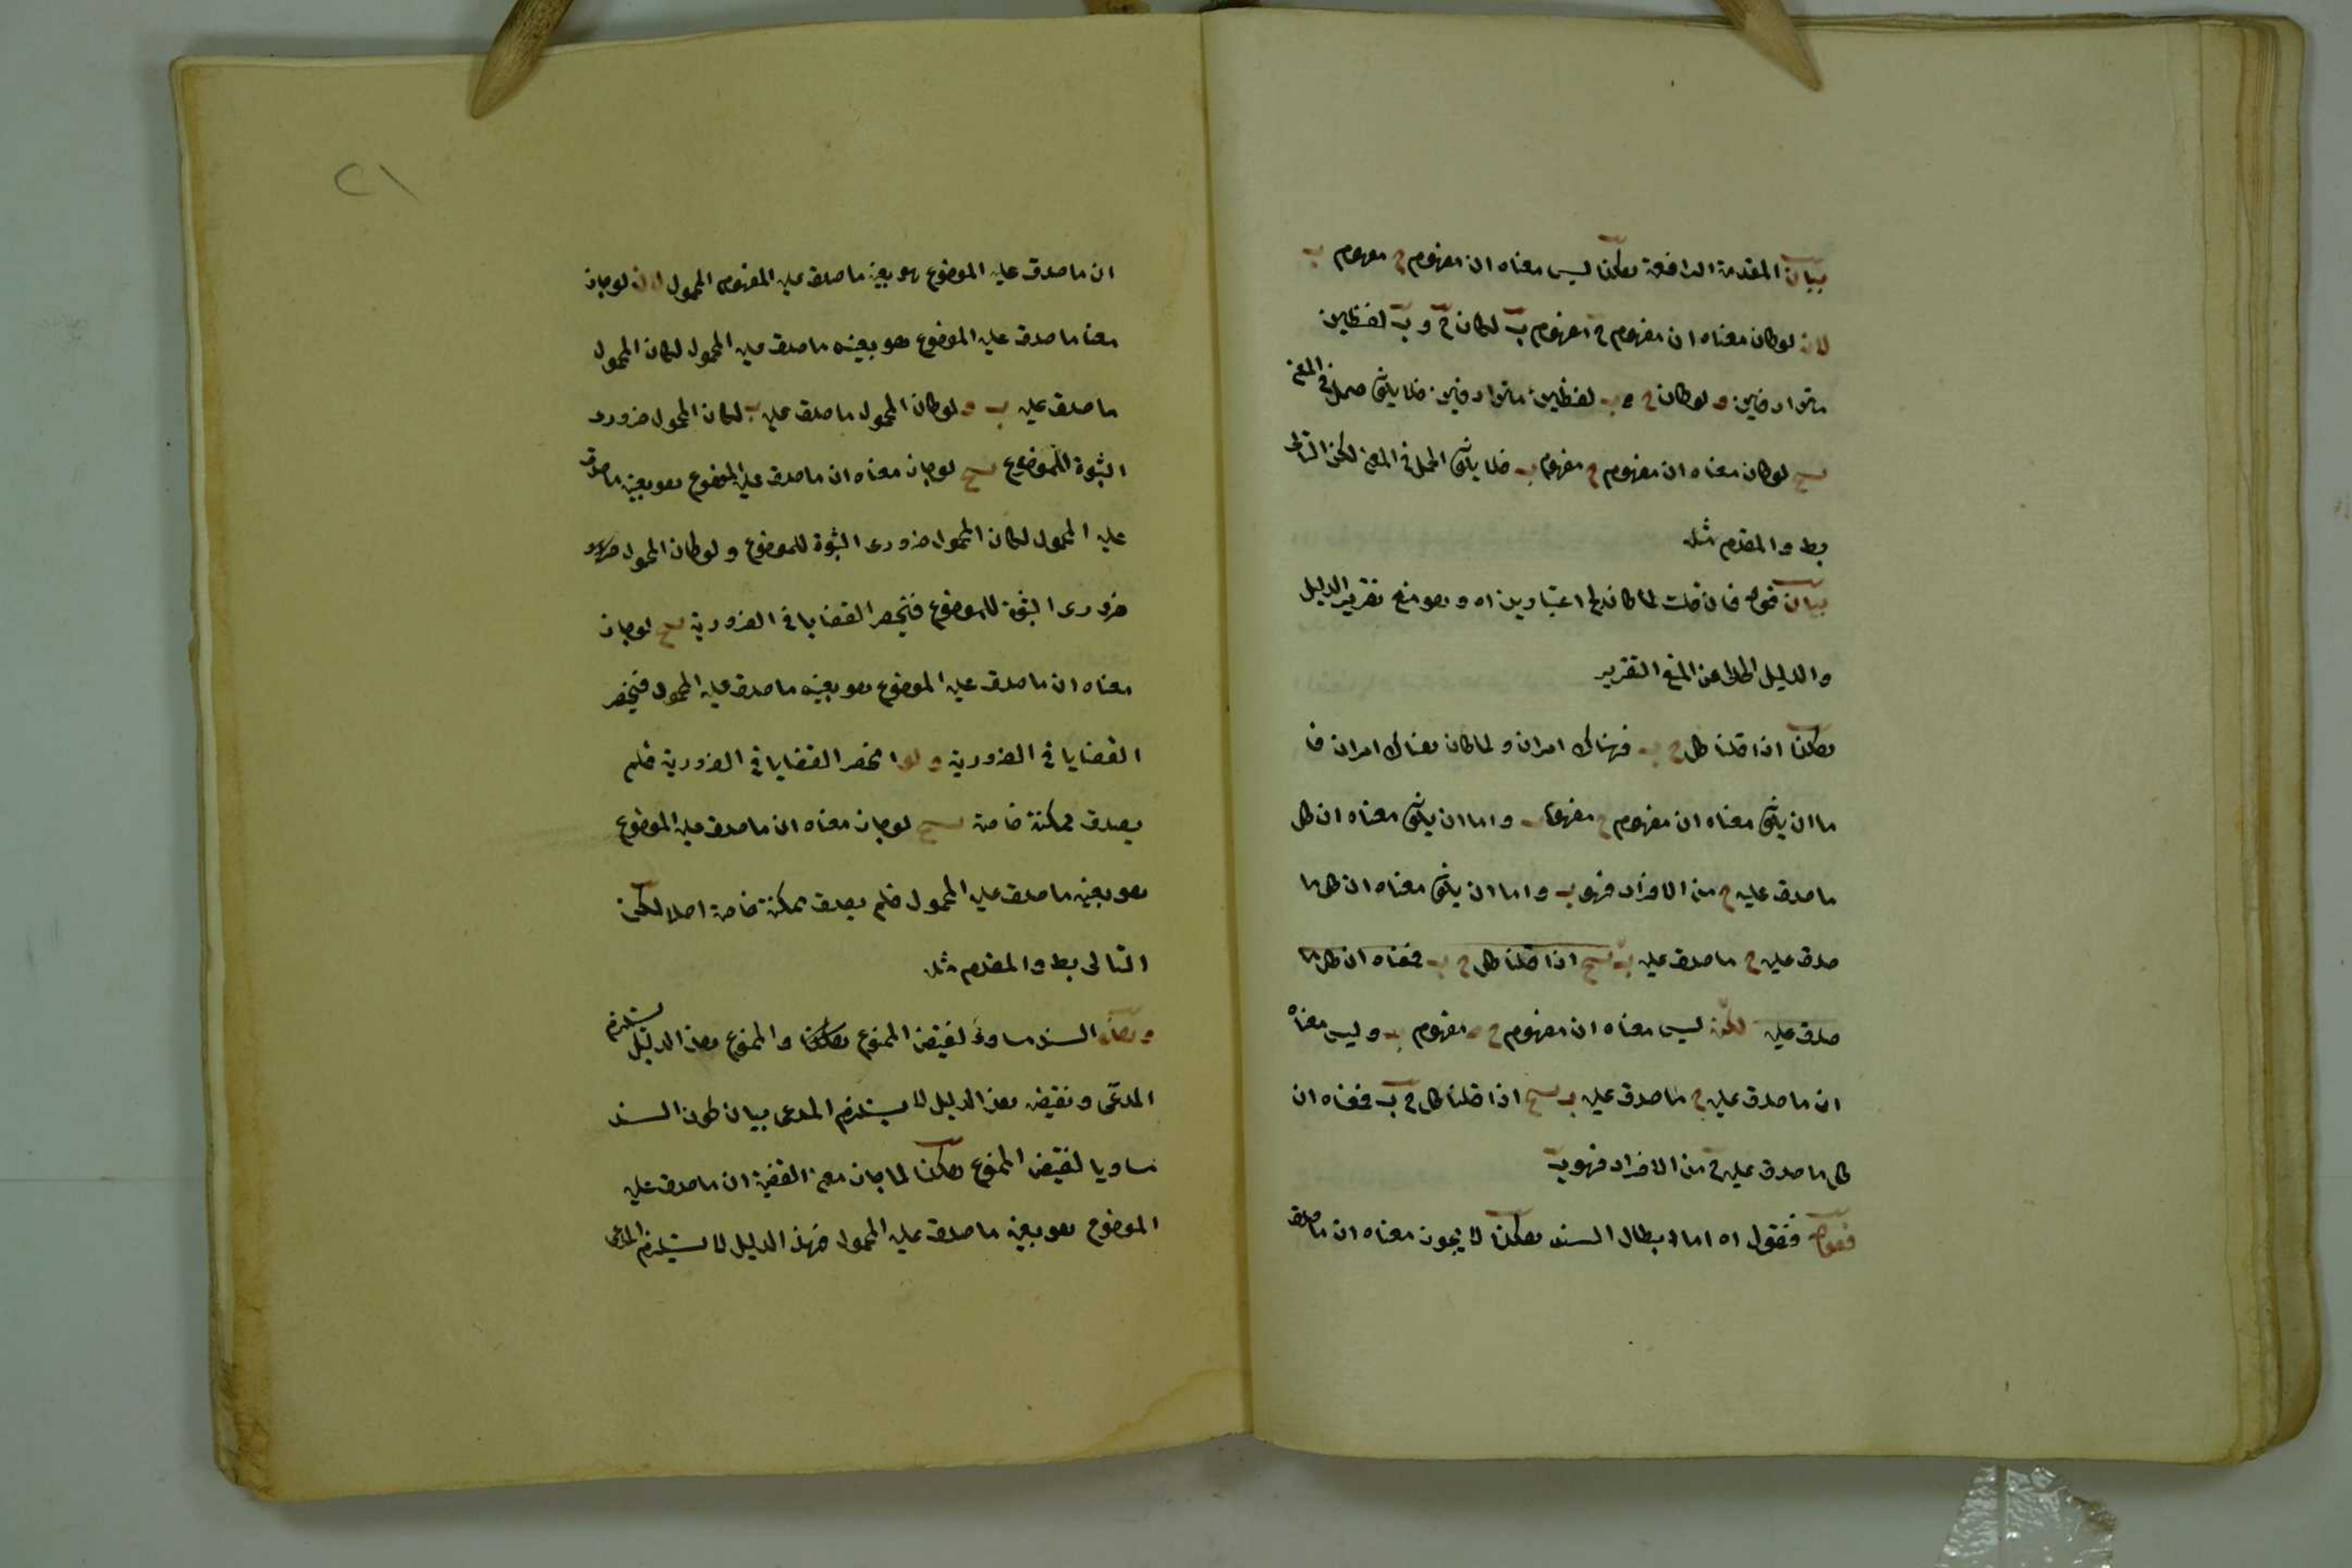 بيان المقدمة الرافعة هكذا ليس معناه ان مفهوم ج مفهوم ب
لان لو كان معناه ان مفهوم ج مفهوم ب لكان ج و ب لفظين
مترادفين و لو كان ج و ب لفظين مترادفين فلا يكون حمل في المعنى
ينتج لو كان معناه ان مفهوم ج مفهوم ب فلا يكون الحمل في المعنى لكن التالى
بط و المقدم مثله
بيان قوله فان قلت لما كان ج اعتبارين اه و هو منع تقرير الدليل
والدليل الخالى عن المنع التقرير
هكذا اذا قلنا كل ج ب فهناك امران و لما كان هناك امران فا
ما ان يكون معناه ان مفهوم ج مفهوم ب و اما ان يكون معناه ان كل
ما صدق عليه ج من الافراد فهو ب و اما ان يكون معناه ان كل ما
صدق عليه ج ما صدق عليه ب ينتج اذا قلنا كل ج ب فمعناه ان كل ما
صدق عليه لكن ليس معناه ان مفهوم ج مفهوم ب و ليس معناه
ان ما صدق عليه ج ما صدق عليه ب ينتج اذا قلنا كل ج ب فمعناه ان
كل ما صدق عليه ج من الافراد فهو ب
فقوله فنقول اه اما ابطال السند هكذا لا يجوز معناه ان ما صدق
٢١
ان ما صدق عليه الموضوع هو بعينه ما صدق عليه المفهوم المحمول لان لو جاز
معنا ما صدق عليه الموضوع هو بعينه ما صدق عليه المحمول لكان المحمول
ما صدق عليه ب و لو كان المحمول ما صدق عليه ب لكان المحمول ضرورى
الثبوة للموضوع ينتج لو جاز معناه ان ما صدق عليه الموضوع هو بعينه ما صدق
عليه المحمول لكان المحمول ضرورى الثبوة للموضوع و لو كان المحمول
ضرورى الثبوة للموضوع فينحصر القضايا في الضرورية ينتج لو جاز
معناه ان ما صدق عليه الموضوع هو بعينه ما صدق عليه المحمول فينحصر
القضايا في الضرورية و لو انحصر القضايا في الضرورية فلم
يصدق ممكنة خاصة ينتج لو جاز معناه ان ما صدق عليه الموضوع
هو بعينه ما صدق عليه المحمول فلم يصدق ممكنة خاصة اصلا لكن
التالى بط و المقدم مثله
و هذا السند مساو لنقيض الممنوع هكذا و الممنوع هذا الدليل يستلزم
المدعى و نقيضه هذا الدليل لا يستلزم المدعى بيان كون السند
مساويا لنقيض الممنوع هكذا لما جاز معنى القضية ان ما صدق عليه
الموضوع هو بعينه ما صدق عليه المحمول فهذا الدليل لا يستلزم المدعى